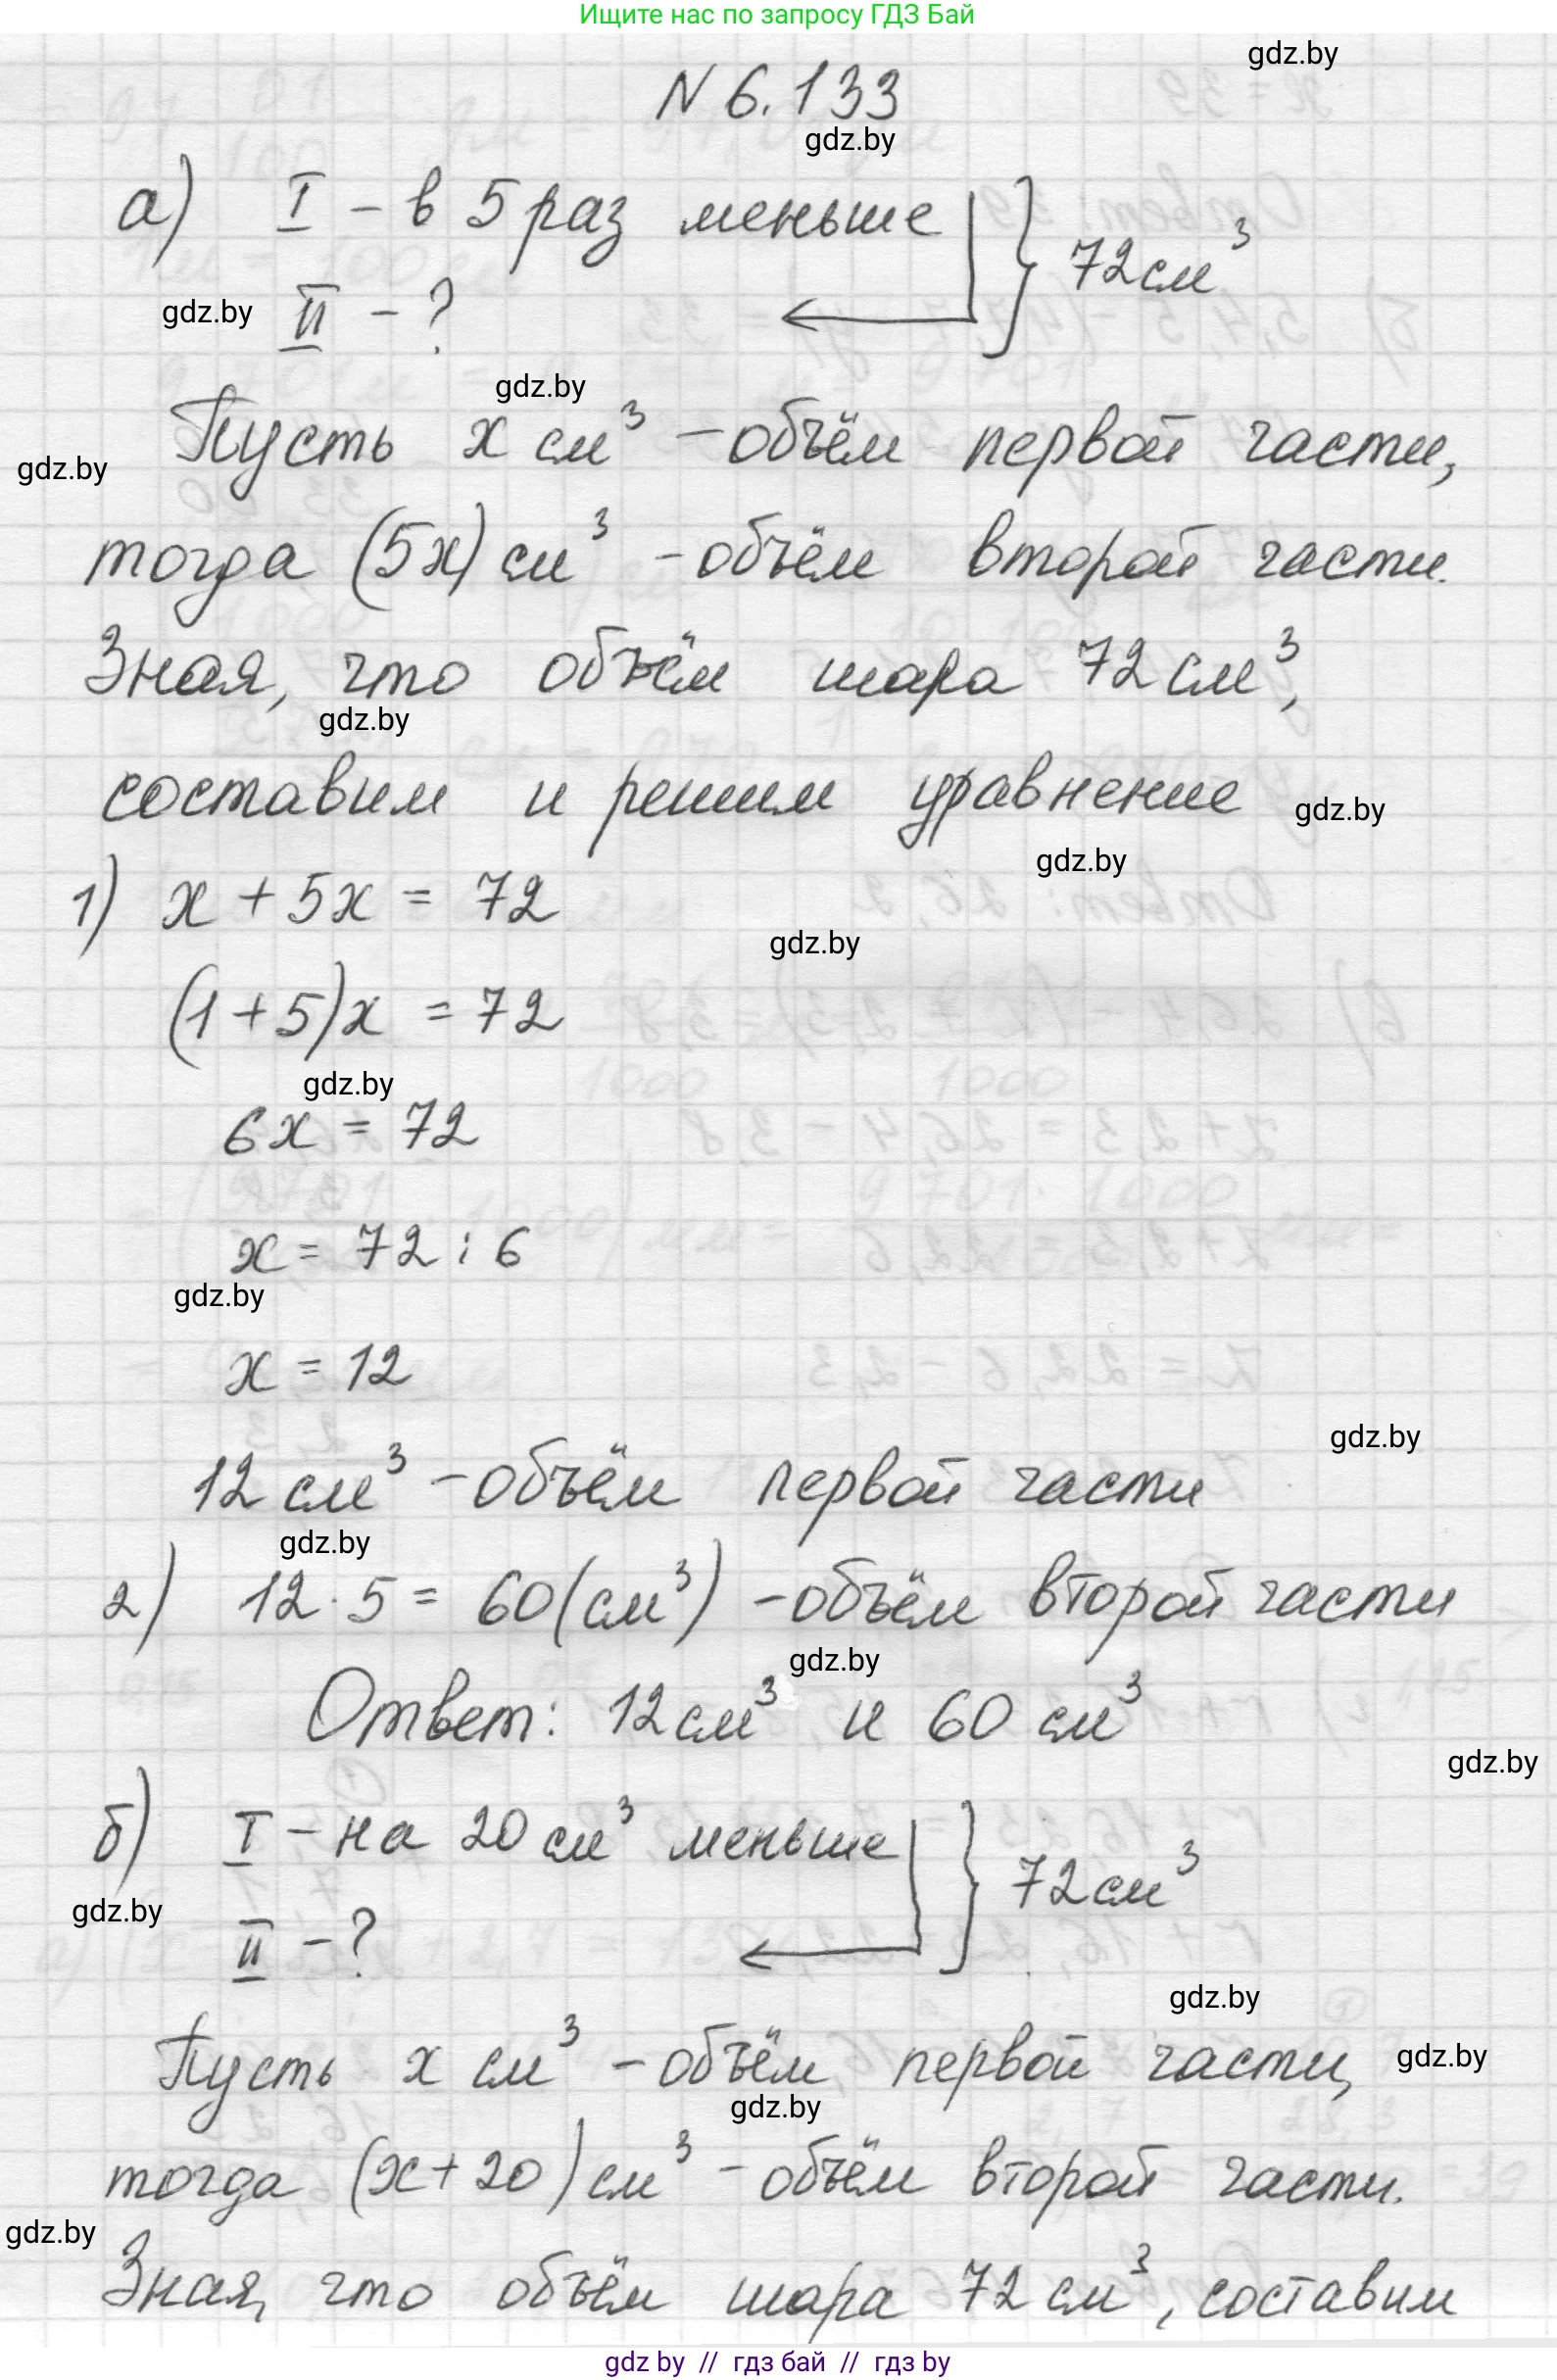 Ищите нас по запросу ГДЗ Бай
gdz.by
N 6.133
gdz.by
а) I - в 5 раз меньше
72 см³
gdz.by
II - ?
gdz.by
Пусть x см³ - объём первой части,
gdz.by
тогда (5x) см³ - объём второй части.
Зная, что объём шара 72 см³,
gdz.by
составим и решим уравнение
gdz.by
gdz.by
1) x + 5x = 72
gdz.by
(1 + 5)x = 72
gdz.by
6x = 72
x = 72 : 6
gdz.by
x = 12
gdz.by
12 см³ - объём первой части
gdz.by
2) 12 · 5 = 60 (см³) - объём второй части
gdz.by
Ответ: 12 см³ и 60 см³
gdz.by
б) I - на 20 см³ меньше
72 см³
gdz.by
II - ?
gdz.by
Пусть x см³ - объём первой части,
gdz.by
gdz.by
тогда (x + 20) см³ - объём второй части.
gdz.by
Зная, что объём шара 72 см³, составим
gdz by // гдз бай // гдз by